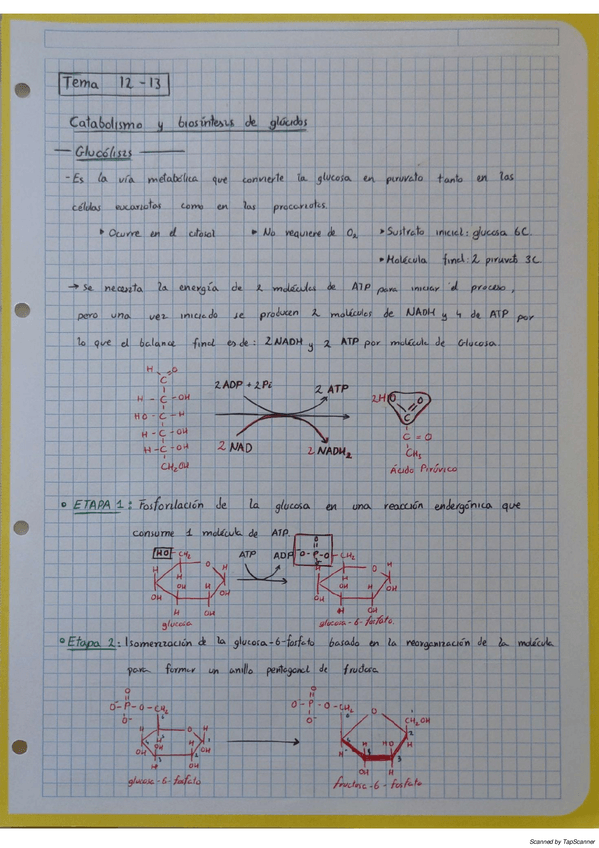 Tema 12-13
Catabolismo y biosíntesis de glúcidos
Glucólisis
- Es la vía metabólica que convierte la glucosa en piruvato tanto en las
células eucariotas como en las procariotas.
▸ Ocurre en el citosol ▸ No requiere de O₂ ▸ Sustrato inicial: glucosa 6C.
▸ Molécula final: 2 piruvato 3C
→ Se necesita la energía de 2 moléculas de ATP para iniciar el proceso,
pero una vez iniciado se producen 2 moléculas de NADH y 4 de ATP por
lo que el balance final es de: 2 NADH y 2 ATP por molécula de Glucosa.
H O
C
H - C - OH
HO - C - H
H - C - OH
H - C - OH
CH₂OH
2 ADP + 2Pi 2 ATP
2 NAD 2 NADH₂
2HO O
C
C = O
CH₃
Ácido Pirúvico
ETAPA 1: Fosforilación de la glucosa en una reacción endergónica que
consume 1 molécula de ATP.
HO - CH₂
O
H H H
OH H
OH OH
H OH
glucosa
ATP ADP
O
O - P - O - CH₂
O
H H
OH H
OH OH
H OH
glucosa-6-fosfato
Etapa 2: Isomerización de la glucosa-6-fosfato basado en la reorganización de la molécula
para formar un anillo pentagonal de fructosa
O
O - P - O - CH₂
O⁻
O
H H
OH OH
H OH
glucosa-6-fosfato
O
O - P - O - CH₂
O⁻
O CH₂OH
H HO
OH H
fructosa-6-fosfato
Scanned by TapScanner